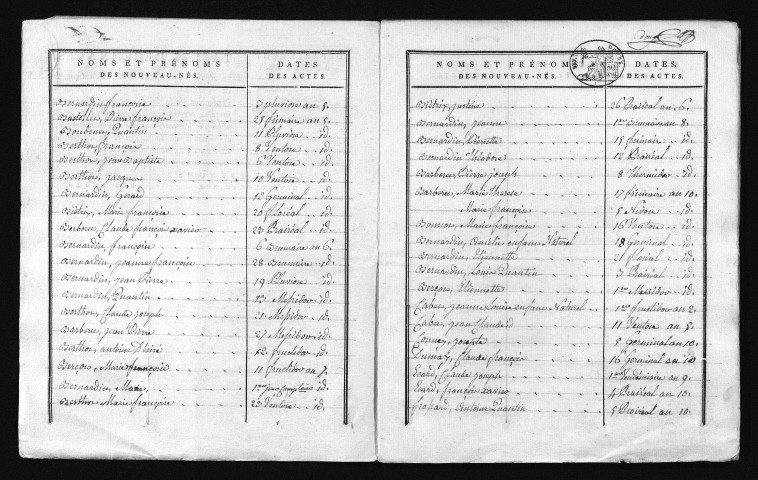 NOMS ET PRÉNOMS
DES NOUVEAU-NÉS.
DATES
DES ACTES.
Bernardin françoise 3 pluviose an 5.
Bastollin, Pierre françois 28 frimaire an 5.
Quantin 11 Pluviose id.
Berthon, françois 8 Ventose id.
Berthon, jean Baptiste 6 Ventose id.
Berthon, jacques 10 Ventose id.
Bernardin, Gérard 12 Germinal id.
Biétrix, Marie françoise 20 floréal id.
Barberot, Claude françois xavier 23 Prairéal id.
Bernardin françoise 6 Brumaire an 6.
Bernardin, jeanne françoise 28 Brumaire id.
Bernardin, jean Pierre 19 Pluviose id.
Bernardin, Quantin 13 Messidor id.
Berthon, Claude joseph 21 Messidor id.
Barberot, jean Pierre 27 Messidor id.
Berthon, antoine Désiré 12 fructidor id.
Bergon, Marie françoise 11 fructidor an 7.
Bernardin, Marie 1er jour Complémre id.
Berthon Marie françoise 23 Ventose id.
NOMS ET PRÉNOMS
DES NOUVEAU-NÉS.
DATES
DES ACTES.
Biétrix, justine 26 Prairéal an 6.
Bernardin, jeanne 1er Brumaire an 8.
Bernardin, Pierrette 15 frimaire id.
Bernardin Théodore 12 Prairéal id.
Barberot, Pierre joseph 8 Thermidor id.
Barberot, Marie Thérese 17 frimaire an 10.
Marie françoise 5 Nivose id.
Marie françoise 16 Ventose id.
Bernardin, enfant Naturel 18 Germinal id.
Bernardin, Etiennette 21 floréal id.
Bernardin, Louis Quantin 3 Prairéal id.
Bergon, Etiennette 1er Messidor id.
jeanne Louise enfant Naturel 1er fructidor an 2.
jean Claude 11 Ventose an 5.
joseph 5 Germinal an 10.
Dumay, Claude françois 16 Germinal an 10
Ecard, Claude joseph 1er Vendémiaire an 9.
Ecard, françois xavier 4 Prairéal an 10.
Quantin 5 Prairéal an 10.